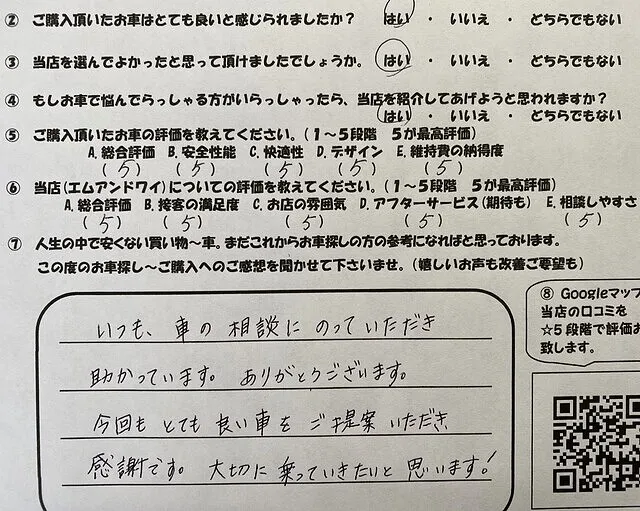 ② ご購入頂いたお車はとても良いと感じられましたか？ はい ・ いいえ ・ どちらでもない
③ 当店を選んでよかったと思って頂けましたでしょうか。 はい ・ いいえ ・ どちらでもない
④ もしお車で悩んでらっしゃる方がいらっしゃったら、当店を紹介してあげようと思われますか？
はい ・ いいえ ・ どちらでもない
⑤ ご購入頂いたお車の評価を教えてください。（１～５段階 ５が最高評価）
A. 総合評価 B. 安全性能 C. 快適性 D. デザイン E. 維持費の納得度
（ 5 ） （ 5 ） （ 5 ） （ 5 ） （ 5 ）
⑥ 当店（エムアンドワイ）についての評価を教えてください。（１～５段階 ５が最高評価）
A. 総合評価 B. 接客の満足度 C. お店の雰囲気 D. アフターサービス（期待も） E. 相談しやすさ
（ 5 ） （ 5 ） （ 5 ） （ 5 ） （ 5 ）
⑦ 人生の中で安くない買い物～車。まだこれからお車探しの方の参考になればと思っております。
この度のお車探し～ご購入へのご感想を聞かせて下さいませ。（嬉しいお声も改善ご要望も）
いつも、車の相談にのっていただき
助かっています。ありがとうございます。
今回もとても良い車をご提案いただき
感謝です。大切に乗っていきたいと思います！
⑧ Googleマップ
当店の口コミを
☆５段階で評価お
致します。